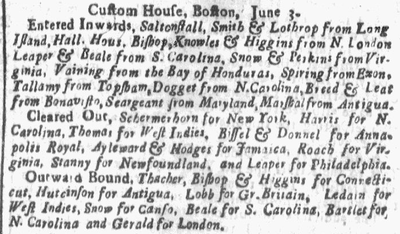 Custom House, Boston, June 3.
Entered Inwards, Saltonstall, Smith & Lothrop from Long
Island, Hall. Hous, Bishop, Knowles & Higgins from N. London
Leaper & Beale from S. Carolina, Snow & Perkins from Vir-
ginia, Vaining from the Bay of Honduras, Spiring from Exon,
Tallamy from Topsham, Dogget from N.Carolina, Breed & Leat
from Bonavisto, Seargeant from Maryland, Marshal from Antigua.
Cleared Out, Schermerhorn for New York, Harris for N.
Carolina, Thomas for West Indies, Bissel & Donnel for Anna-
polis Royal, Ayleward & Hodges for Jamaica, Roach for Vir-
ginia, Stanny for Newfoundland, and Leaper for Philadelphia.
Outward Bound, Thacher, Bishop & Higgins for Connecti-
cut, Hutcinson for Antigua, Lobb for Gr. Britain, Ledain for
West Indies, Snow for Canso, Beale for S. Carolina, Bartlet for
N. Carolina and Gerald for London.